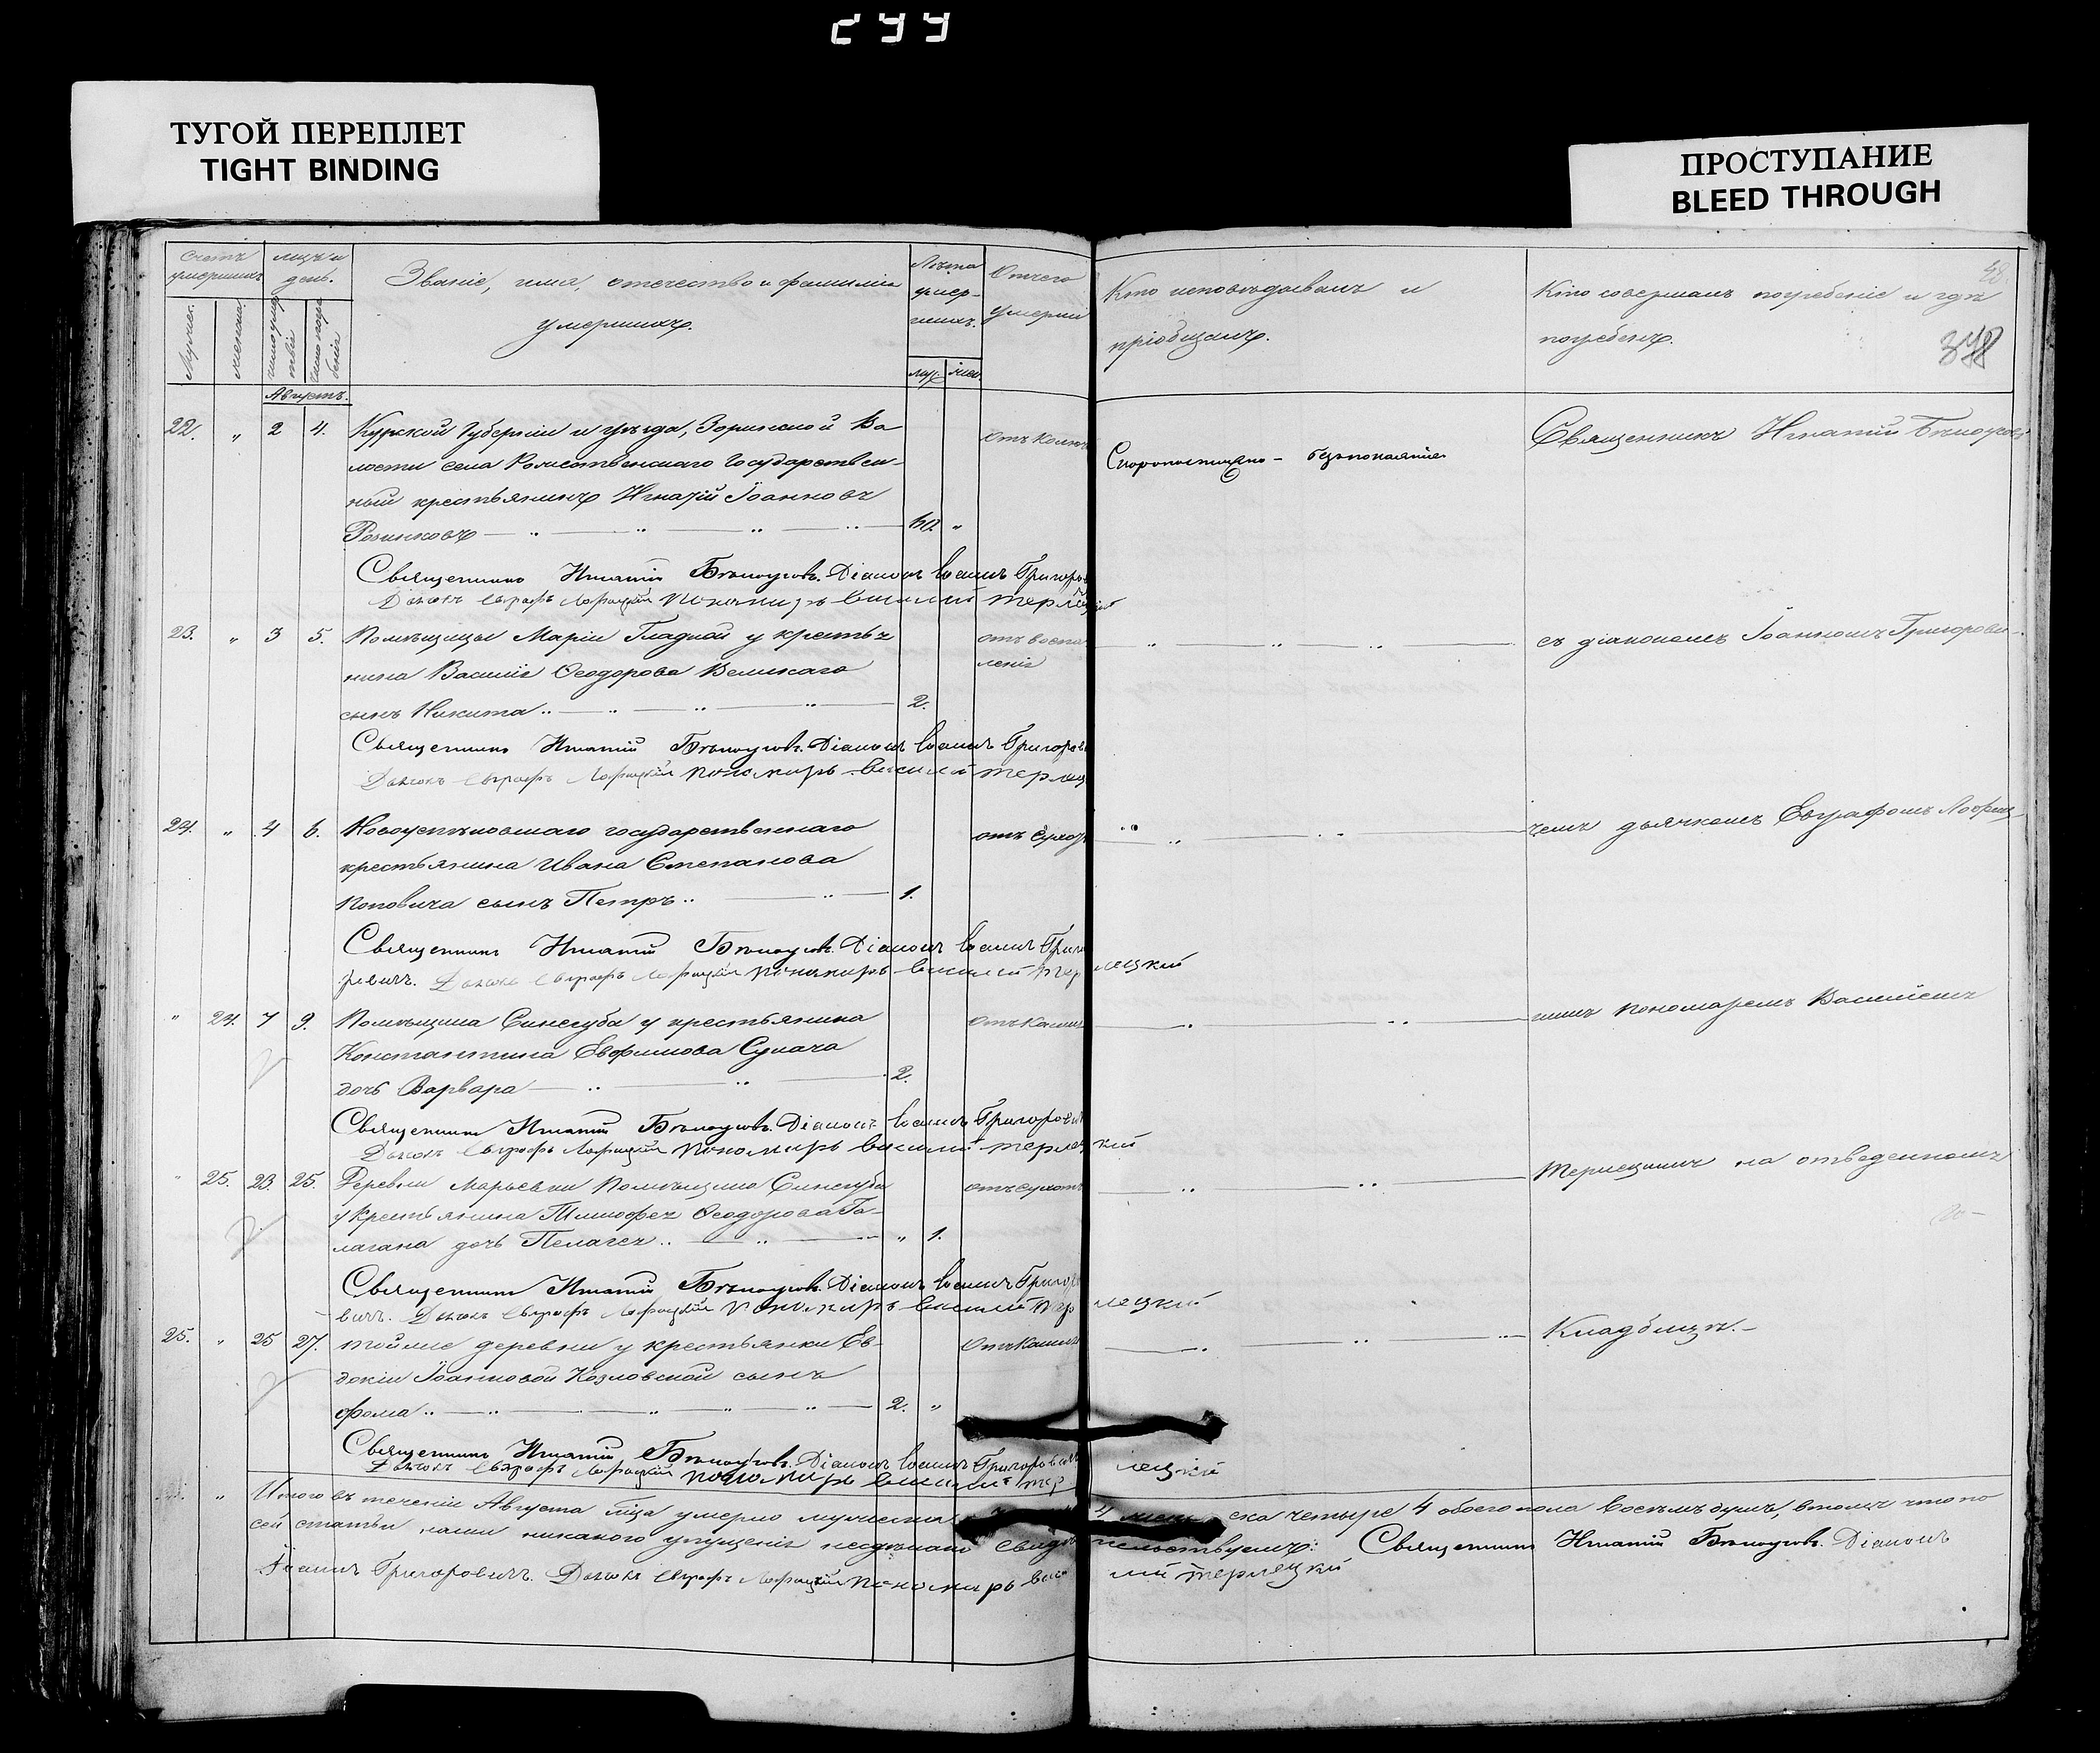 299
ТУГОЙ ПЕРЕПЛЕТ
TIGHT BINDING
ПРОСТУПАНИЕ
BLEED THROUGH
Счетъ умершихъ
мѣсяцъ и день.
Званіе, имя, отечество и фамилія умершихъ.
Лѣта умершихъ.
Отчего умерли
Кто исповѣдывалъ и пріобщалъ.
Кто совершалъ погребеніе и гдѣ погребенъ.
48
348
Мужес.
женска.
муж.
жен.
Августъ.
22. " 2 4. Курской Губерніи и уѣзда, Зоринской Во
лости села Рожественскаго Государствен-
ный крестьянинъ Игнатій Іоанновъ
60. "
Скоропостижно - безъ покаянія
Священникъ Игнатій Бѣлоусовъ
Священникъ Игнатій Бѣлоусовъ. Діаконъ Іоаннъ Григоро
Дьячокъ Евграфъ Пономарь Василій Терлецкій
23. " 3 5. Помѣщицы Маріи Гладкой у крестья
нина Василія Ѳеодорова Великаго
сынъ Никита 2.
отъ воспа
ленія
съ діакономъ Іоанномъ Григорови-
Священникъ Игнатій Бѣлоусовъ. Діаконъ Іоаннъ Григоров
Дьячокъ Евграфъ Пономарь Василій Терлец
24. " 4 6. государственнаго
крестьянина Ивана Степанова
Поповича сынъ Петръ 1.
чемъ дьячкомъ Евграфомъ
Священникъ Игнатій Бѣлоусовъ. Діаконъ Іоаннъ Григо
ровичъ. Дьячокъ Евграфъ Пономарь Василій Терлецкій
" 24. 7 9. Помѣщика Синегуба у крестьянина
Константина Евфимова Сукача
дочь Варвара 2.
Отъ Кашля
кимъ пономаремъ Василіемъ
Священникъ Игнатій Бѣлоусовъ. Діаконъ Іоаннъ Григорович
Дьячокъ Евграфъ Пономарь Василій Терлецкій
" 25. 23. 25. Деревни Марьевки Помѣщика Синегуба
у Крестьянина Тимофея Ѳеодорова Га-
лагана дочь Пелагея " 1.
отъ сухот
Терлецкимъ на отведенномъ
Священникъ Игнатій Бѣлоусовъ. Діаконъ Іоаннъ Григоро
вичъ. Дьячокъ Евграфъ Пономарь Василій Терлецкій
25. " 25 27. тойже деревни у крестьянки Ев-
докіи Іоанновой Козловской сынъ
Фома 2. "
Отъ Кашля
Кладбищѣ.-
Священникъ Игнатій Бѣлоусовъ. Діаконъ Іоаннъ Григорович
Дьячокъ Евграфъ Пономарь Василій Терлецкій
Итого въ теченіи Августа м҃ца умерло мужеска 4 женска четыре 4 обоего пола восѣмъ душъ, вътомъ что по
сей статьи нами никакого упущенія несдѣлано свидѣтельствуемъ: Священникъ Игнатій Бѣлоусовъ. Діаконъ
Іоаннъ Григоровичъ. Дьячокъ Евграфъ Пономарь Василій Терлецкій